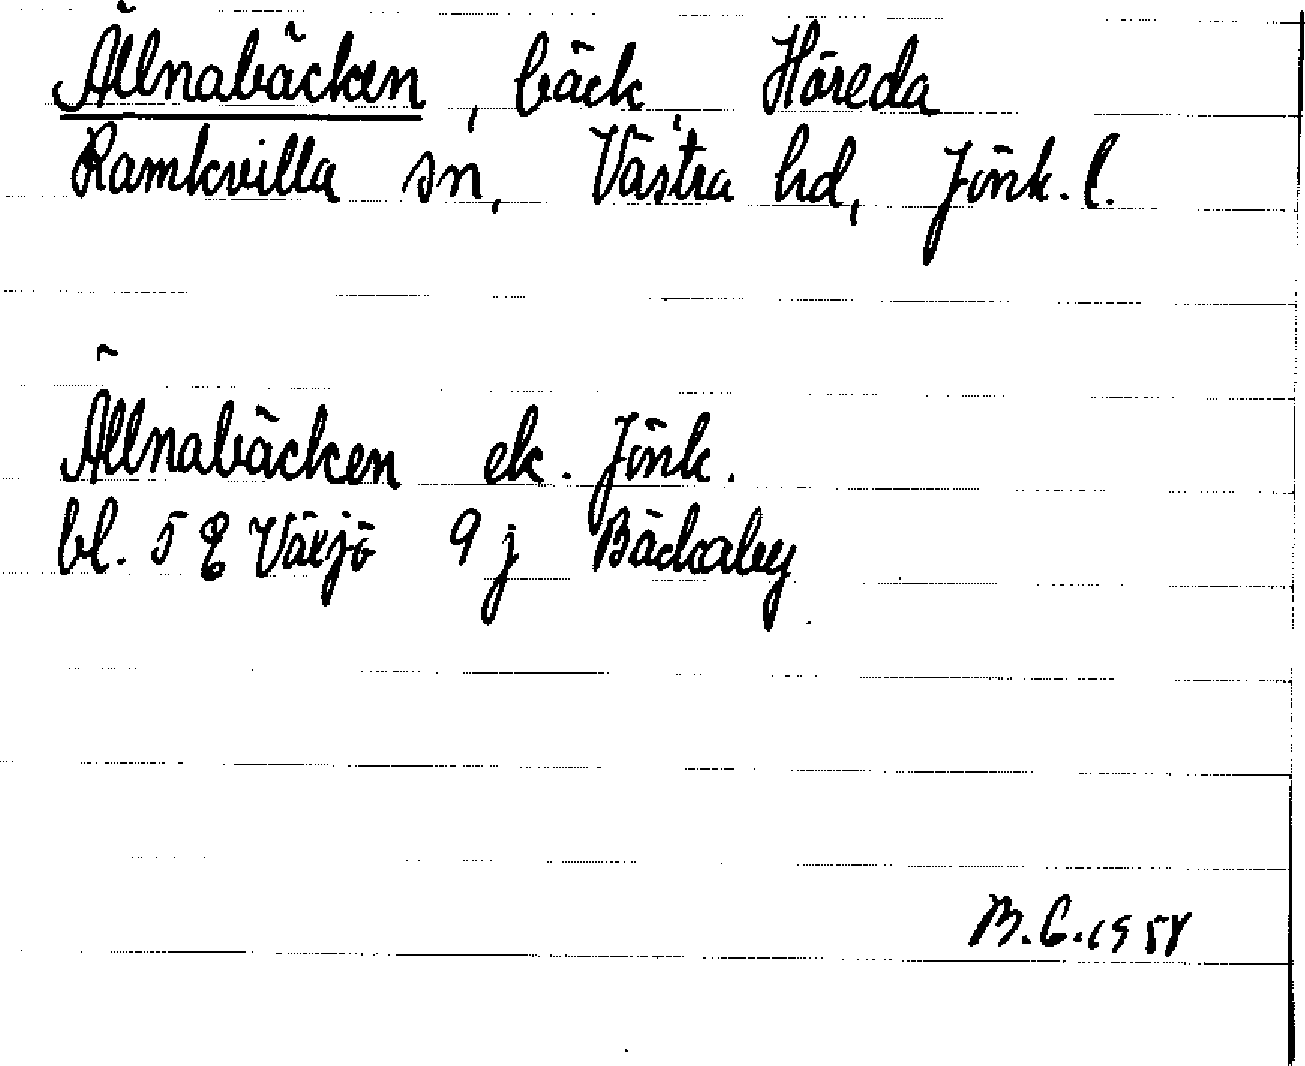 Ällnabäcken, bäck, Höreda
Ramkvilla sn, Västra hd, Jönk. l.
Ällnabäcken ek. Jönk.
bl. 5 E Växjö 9 j Bäckaby
B.G. 1958